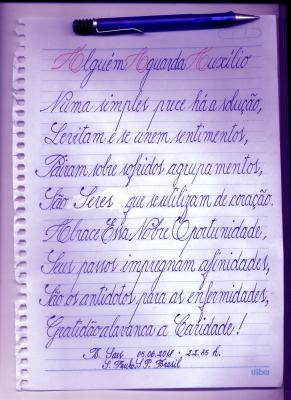 Alguém Aguarda Auxílio
Numa simples prece há a solução,
Levitam e se unem sentimentos,
Pairam sobre sofridos agrupamentos,
São Seres que se utilizam de coração.
Abrace Essa Nobre Oportunidade,
Seus passos impregnam afinidades,
São os antídotos para as enfermidades,
Gratidão alavanca a Caridade!
05.06.2018 - 22:35 h.
S. Paulo S.P. Brasil
tilibra